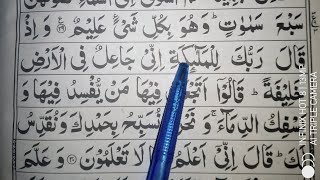 سَبْعَ سَمٰوٰتٍ ؕ وَهُوَ بِكُلِّ شَیْءٍ عَلِیْمٌ ﴿۲۹﴾ وَ اِذْ
قَالَ رَبُّكَ لِلْمَلٰٓئِكَةِ اِنِّیْ جَاعِلٌ فِی الْاَرْضِ
خَلِیْفَةً ؕ قَالُوْۤا اَتَجْعَلُ فِیْهَا مَنْ یُّفْسِدُ فِیْهَا وَ
یَسْفِكُ الدِّمَآءَ ۚ وَ نَحْنُ نُسَبِّحُ بِحَمْدِكَ وَ نُقَدِّسُ
لَكَ ؕ قَالَ اِنِّیْۤ اَعْلَمُ لَا تَعْلَمُوْنَ ﴿۳۰﴾ وَ عَلَّمَ
AI TRIPLE CAMERA